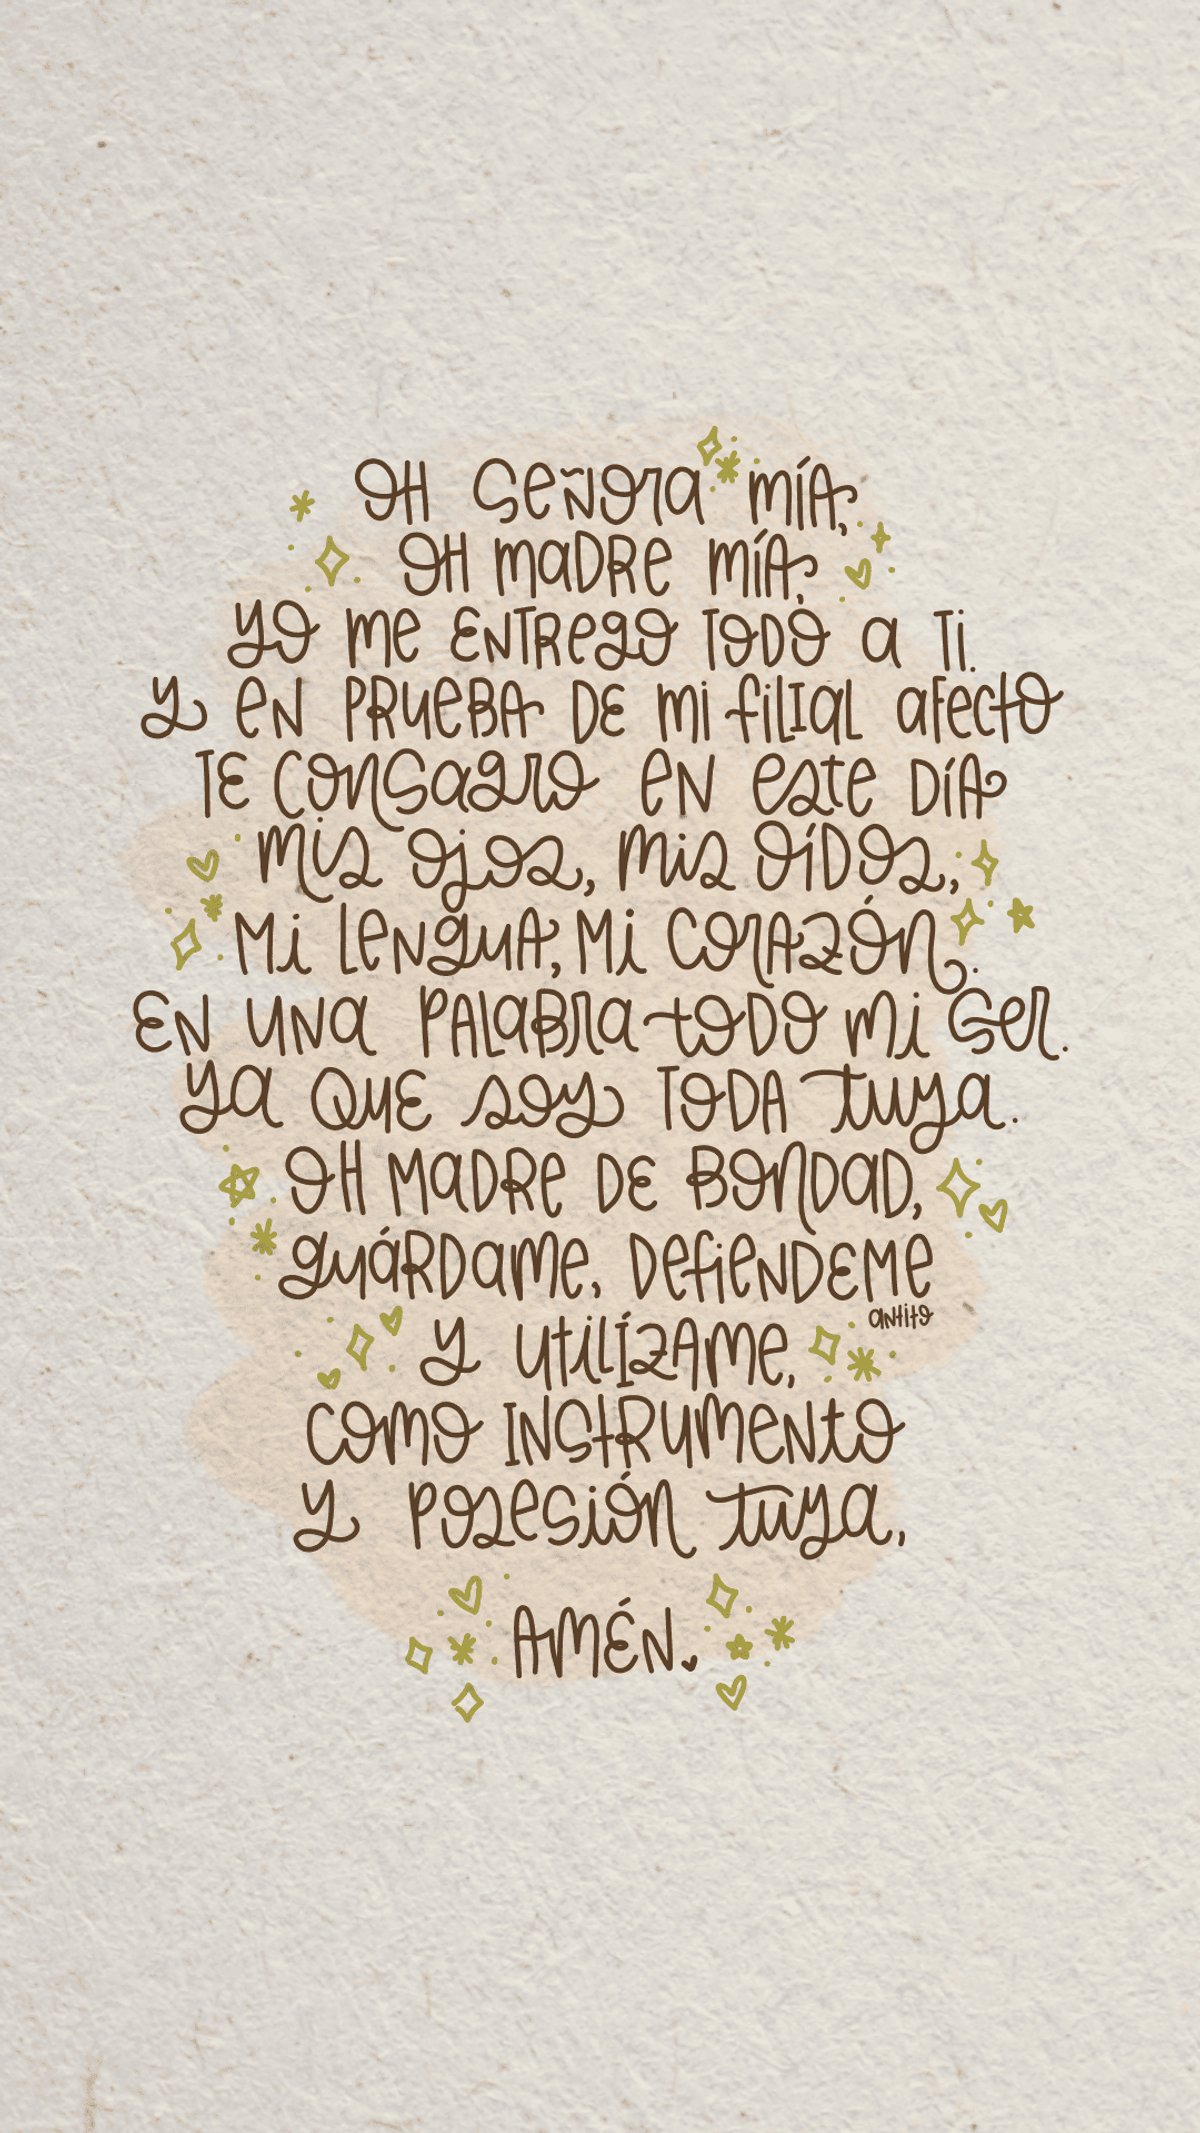 OH Señora mía,
OH madre mía,
yo me entrego todo a ti.
y en prueba de mi filial afecto
te consagro en este día
mis ojos, mis oídos,
mi lengua, mi corazón.
en una palabra todo mi ser.
ya que soy toda tuya.
OH madre de bondad,
guárdame, defiendeme
antito
y utilízame,
como instrumento
y posesión tuya,
Amén.